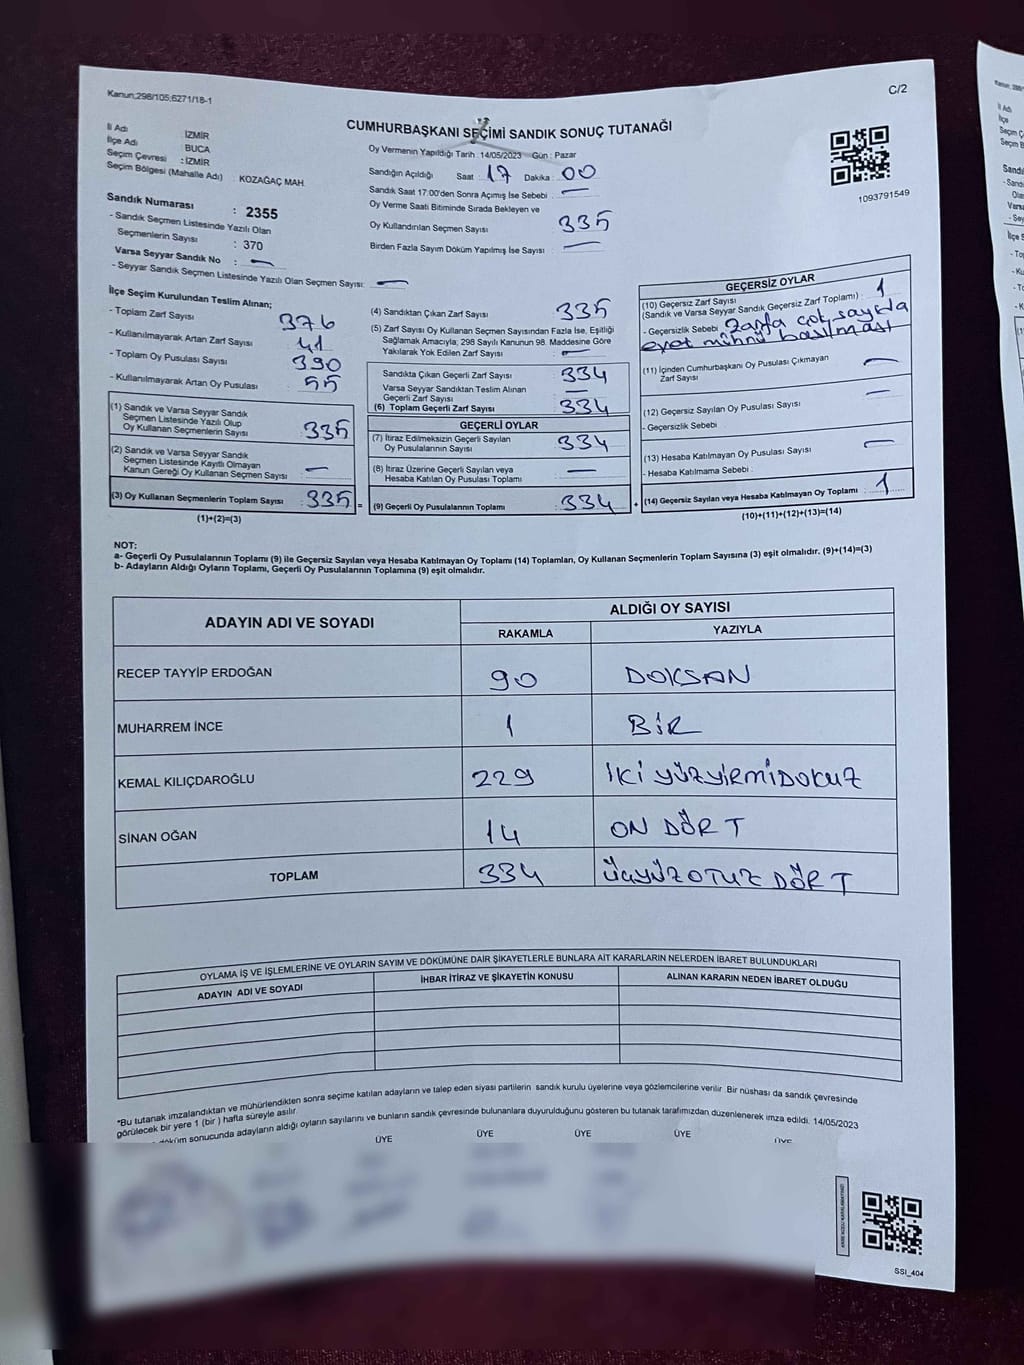 Kanun;298/105;6271/18-1
C/2
CUMHURBAŞKANI SEÇİMİ SANDIK SONUÇ TUTANAĞI
İl Adı : İZMİR
İlçe Adı : BUCA
Seçim Çevresi : İZMİR
Seçim Bölgesi (Mahalle Adı) : KOZAĞAÇ MAH.
Oy Vermenin Yapıldığı Tarih : 14/05/2023 Gün : Pazar
Sandığın Açıldığı Saat : 17 Dakika : 00
Sandık Saat 17:00'den Sonra Açımış İse Sebebi : —
Oy Verme Saati Bitiminde Sırada Bekleyen ve
Oy Kullandırılan Seçmen Sayısı : 335
Birden Fazla Sayım Döküm Yapılmış İse Sayısı : —
1093791549
Sandık Numarası : 2355
- Sandık Seçmen Listesinde Yazılı Olan
Seçmenlerin Sayısı : 370
Varsa Seyyar Sandık No : —
- Seyyar Sandık Seçmen Listesinde Yazılı Olan Seçmen Sayısı: —
İlçe Seçim Kurulundan Teslim Alınan;
- Toplam Zarf Sayısı : 376
- Kullanılmayarak Artan Zarf Sayısı : 41
- Toplam Oy Pusulası Sayısı : 390
- Kullanılmayarak Artan Oy Pusulası : 55
(1) Sandık ve Varsa Seyyar Sandık
Seçmen Listesinde Yazılı Olup
Oy Kullanan Seçmenlerin Sayısı : 335
(2) Sandık ve Varsa Seyyar Sandık
Seçmen Listesinde Kayıtlı Olmayan
Kanun Gereği Oy Kullanan Seçmen Sayısı : —
(3) Oy Kullanan Seçmenlerin Toplam Sayısı : 335 =
(1)+(2)=(3)
(4) Sandıktan Çıkan Zarf Sayısı : 335
(5) Zarf Sayısı Oy Kullanan Seçmen Sayısından Fazla İse, Eşitliği
Sağlamak Amacıyla; 298 Sayılı Kanunun 98. Maddesine Göre
Yakılarak Yok Edilen Zarf Sayısı : —
Sandıkta Çıkan Geçerli Zarf Sayısı : 334
Varsa Seyyar Sandıktan Teslim Alınan
Geçerli Zarf Sayısı : —
(6) Toplam Geçerli Zarf Sayısı : 334
GEÇERLİ OYLAR
(7) İtiraz Edilmeksizin Geçerli Sayılan
Oy Pusulalarının Sayısı : 334
(8) İtiraz Üzerine Geçerli Sayılan veya
Hesaba Katılan Oy Pusulası Toplamı : —
(9) Geçerli Oy Pusulalarının Toplamı : 334 +
GEÇERSİZ OYLAR
(10) Geçersiz Zarf Sayısı
(Sandık ve Varsa Seyyar Sandık Geçersiz Zarf Toplamı) : 1
- Geçersizlik Sebebi : Zarfa çok sayıda
evet mührü basılması
(11) İçinden Cumhurbaşkanı Oy Pusulası Çıkmayan
Zarf Sayısı : —
(12) Geçersiz Sayılan Oy Pusulası Sayısı : —
- Geçersizlik Sebebi
(13) Hesaba Katılmayan Oy Pusulası Sayısı : —
- Hesaba Katılmama Sebebi :
(14) Geçersiz Sayılan veya Hesaba Katılmayan Oy Toplamı : 1
(10)+(11)+(12)+(13)=(14)
NOT:
a- Geçerli Oy Pusulalarının Toplamı (9) ile Geçersiz Sayılan veya Hesaba Katılmayan Oy Toplamı (14) Toplamları, Oy Kullanan Seçmenlerin Toplam Sayısına (3) eşit olmalıdır. (9)+(14)=(3)
b- Adayların Aldığı Oyların Toplamı, Geçerli Oy Pusulalarının Toplamına (9) eşit olmalıdır.
ADAYIN ADI VE SOYADI
ALDIĞI OY SAYISI
RAKAMLA YAZIYLA
RECEP TAYYİP ERDOĞAN 90 DOKSAN
MUHARREM İNCE 1 BİR
KEMAL KILIÇDAROĞLU 229 İKİ YÜZYİRMİDOKUZ
SİNAN OĞAN 14 ON DÖRT
TOPLAM 334 ÜÇYÜZOTUZ DÖRT
OYLAMA İŞ VE İŞLEMLERİNE VE OYLARIN SAYIM VE DÖKÜMÜNE DAİR ŞİKAYETLERLE BUNLARA AİT KARARLARIN NELERDEN İBARET BULUNDUKLARI
ADAYIN ADI VE SOYADI İHBAR İTİRAZ VE ŞİKAYETİN KONUSU ALINAN KARARIN NEDEN İBARET OLDUĞU
*Bu tutanak imzalandıktan ve mühürlendikten sonra seçime katılan adayların ve talep eden siyasi partilerin sandık kurulu üyelerine veya gözlemcilerine verilir. Bir nüshası da sandık çevresinde
görülecek bir yere 1 (bir ) hafta süreyle asılır.
döküm sonucunda adayların aldığı oyların sayılarını ve bunların sandık çevresinde bulunanlara duyurulduğunu gösteren bu tutanak tarafımızdan düzenlenerek imza edildi. 14/05/2023
ÜYE ÜYE ÜYE ÜYE ÜYE
SSI_404